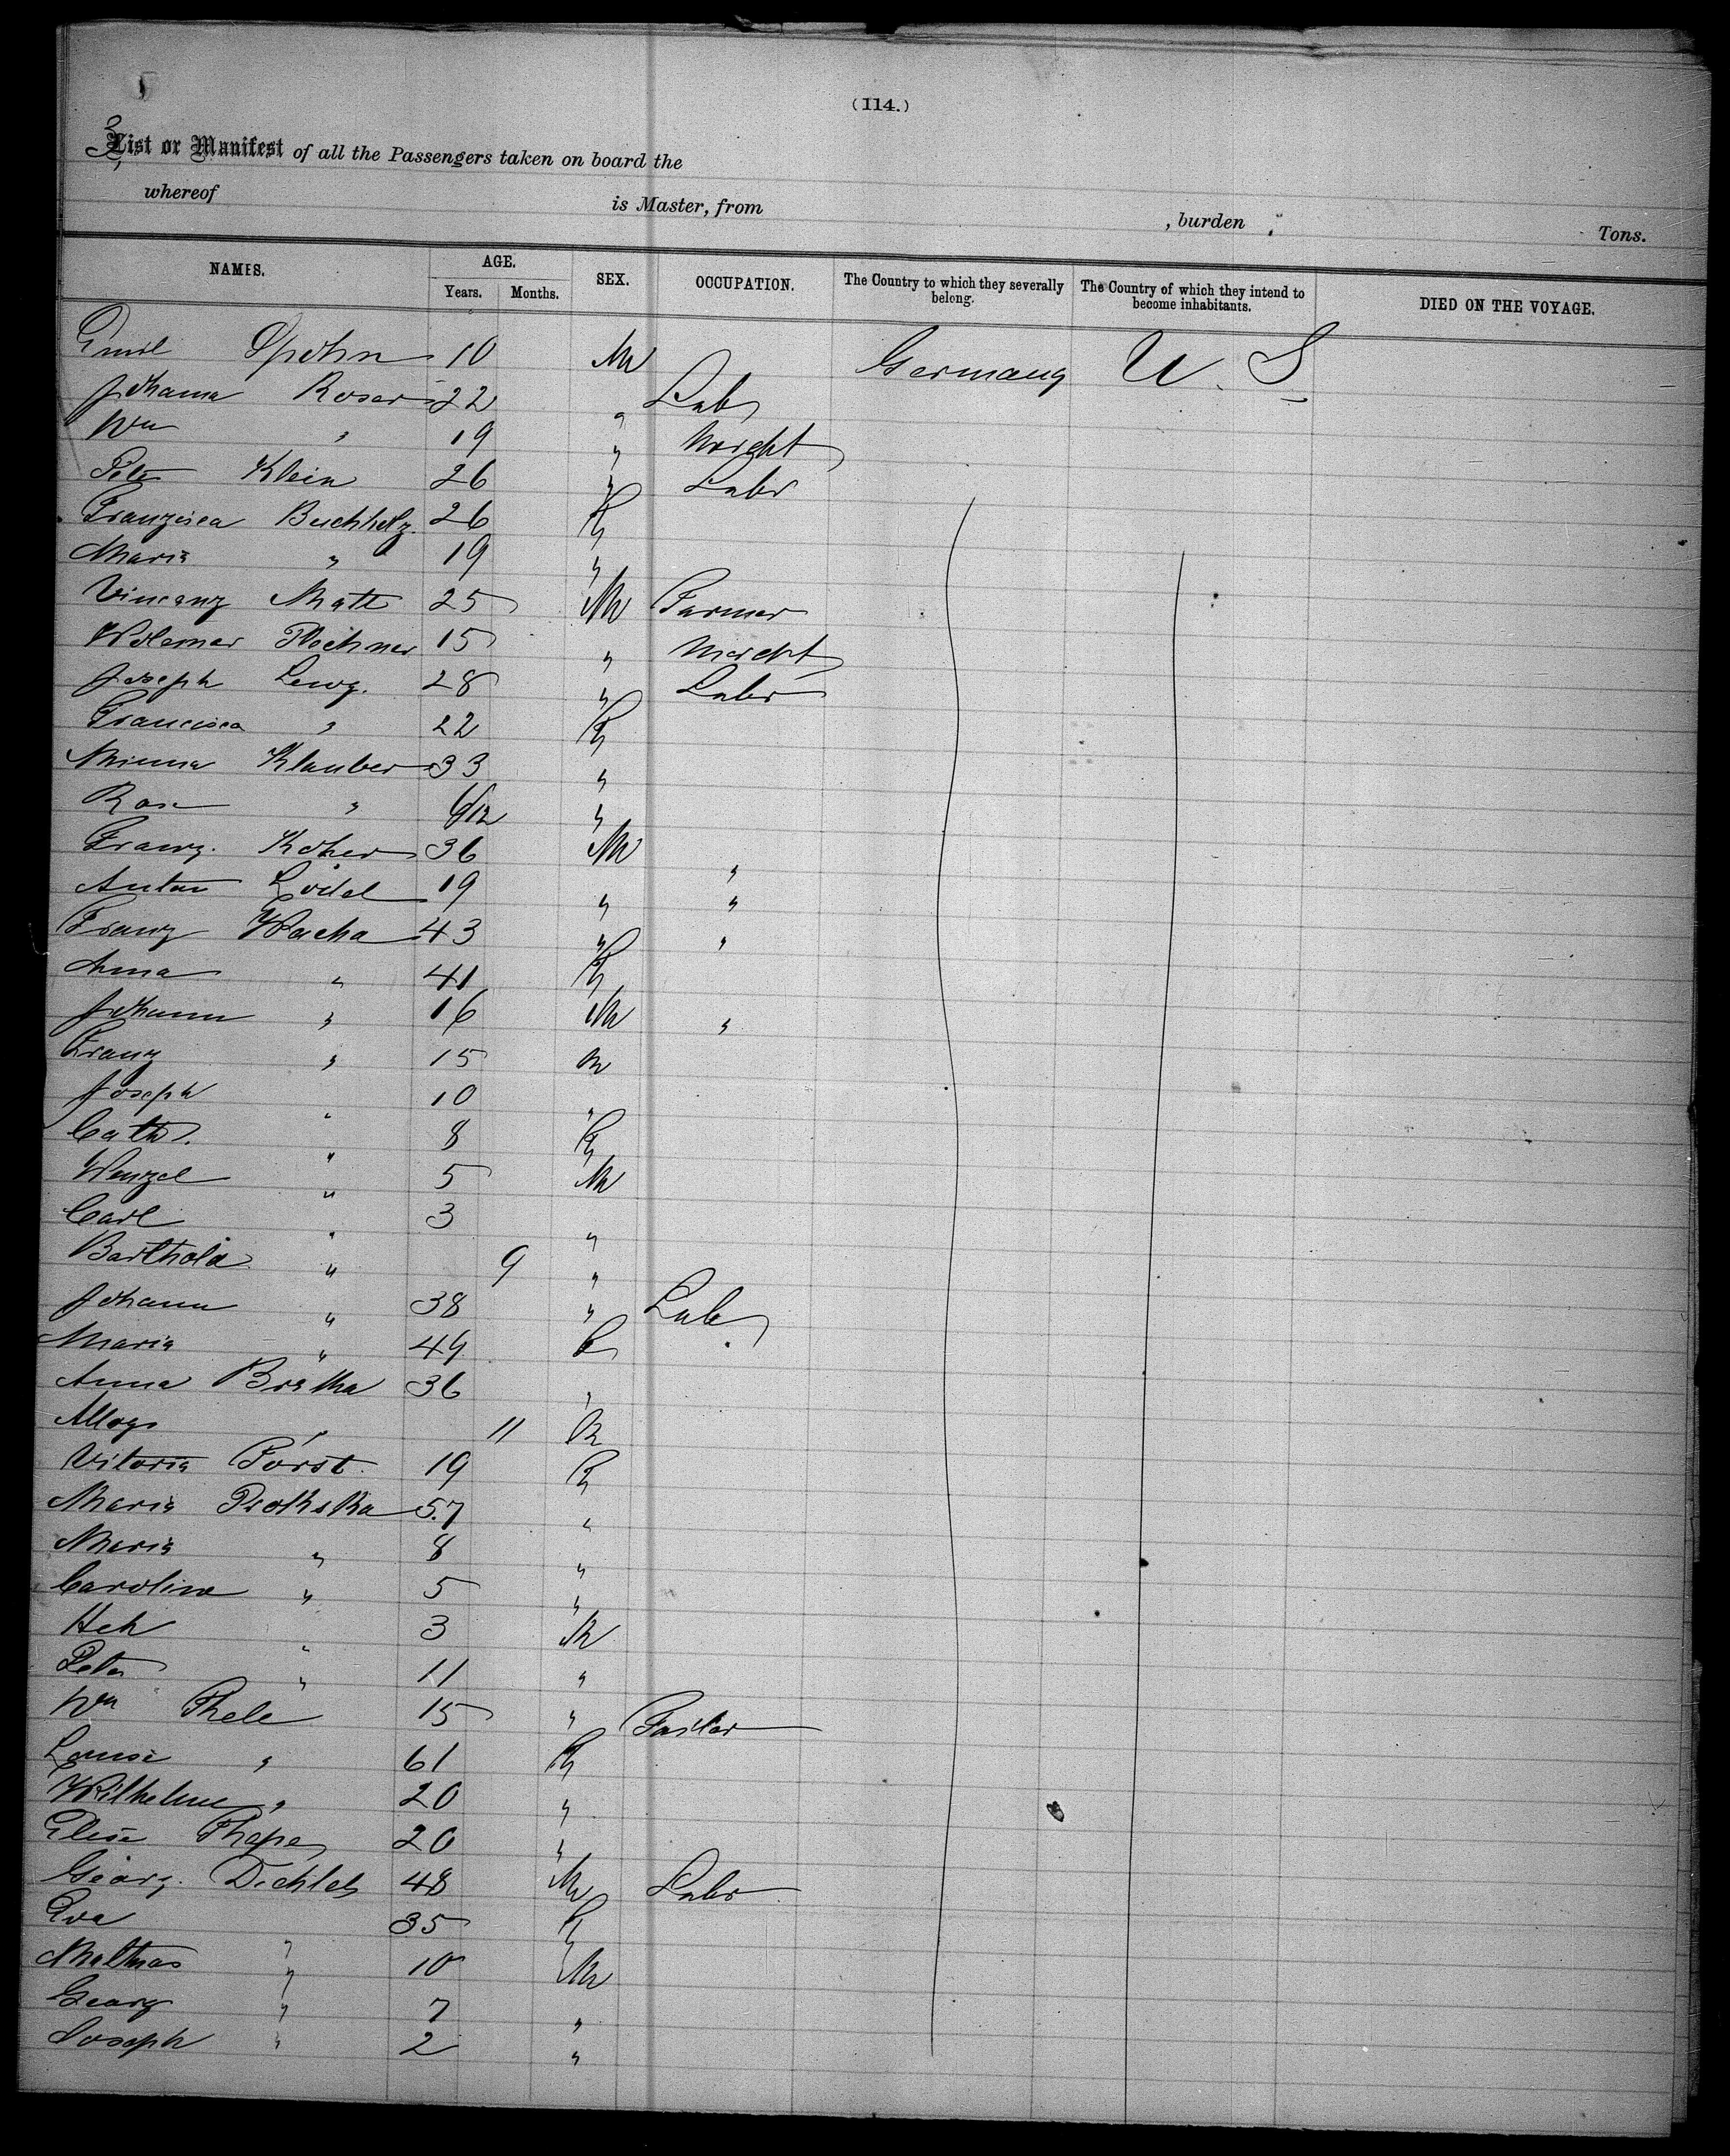 (114.)
3,
List or Manifest of all the Passengers taken on board the
whereof is Master, from , burden Tons.
NAMES. AGE. SEX. OCCUPATION. The Country to which they severally belong. The Country of which they intend to become inhabitants. DIED ON THE VOYAGE.
Years. Months.
Emil Spohn 10 M Germany U. S
Johanna Roser 22 " Lab
Wm " 19 " Mercht
Peter Klein 26 " Labr
Franzisca Buchholz 26 F
Maria " 19 "
Vincenz Matt 25 M Farmer
Wolemar 15 " Mercht
Joseph 28 " Labr
Francisca " 22 F
Minna Klauber 33 "
Rosa " 6/12 "
Franz. Koher 36 M "
Anton Lödel 19 " "
Franz Wacha 43 " "
Anna " 41 F
Johann " 16 M "
Franz " 15 M
Joseph " 10 "
Cath. " 8 F
Wenzel " 5 M
Carl " 3 "
Barthola " 9 "
Johann " 38 " Lab
Maria " 49 F
Anna Bratka 36 "
Alloys " 11 M
Vitoria Först. 19 F
Maria Prokska 57 "
Maria " 8 "
Carolina " 5 "
Hch " 3 M
Peter " 11 "
Wm Thele 15 " Tailor
Louise " 61 F
Wilhelme " 20 "
Elise 20 "
Georg. 48 M Labr
Eva " 35 F
Mathias " 10 M
Georg " 7 "
Joseph " 2 "